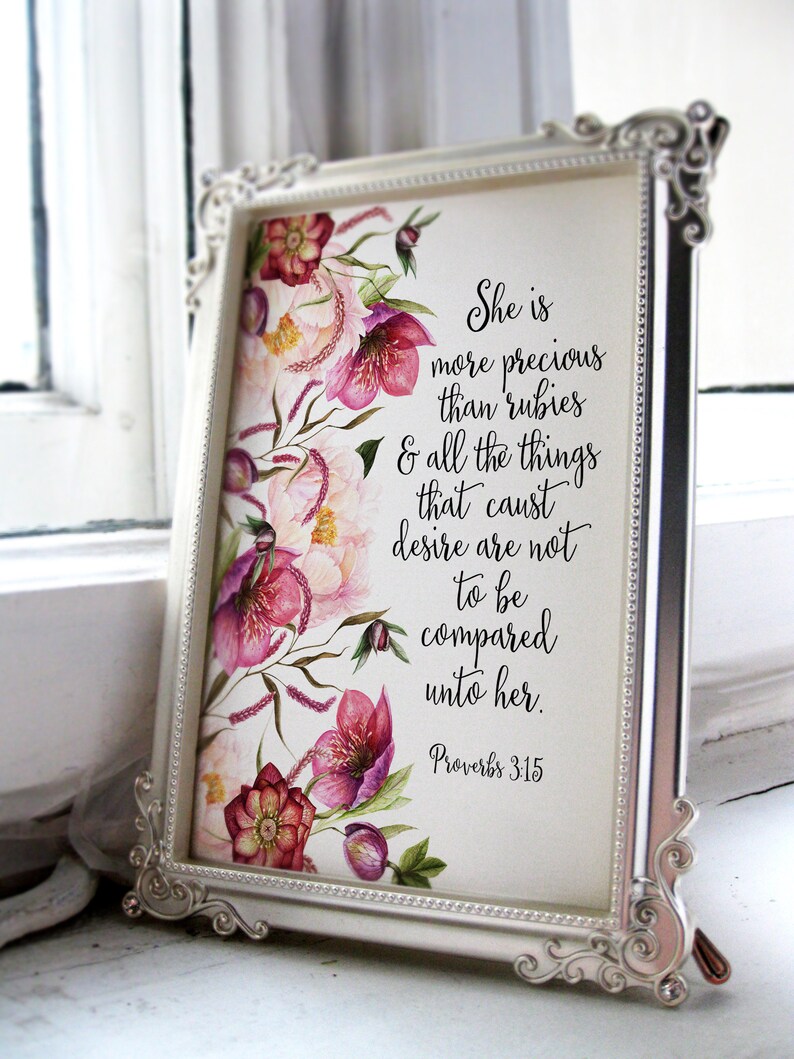 She is
more precious
than rubies
& all the things
that caust
desire are not
to be
compared
unto her.
Proverbs 3:15